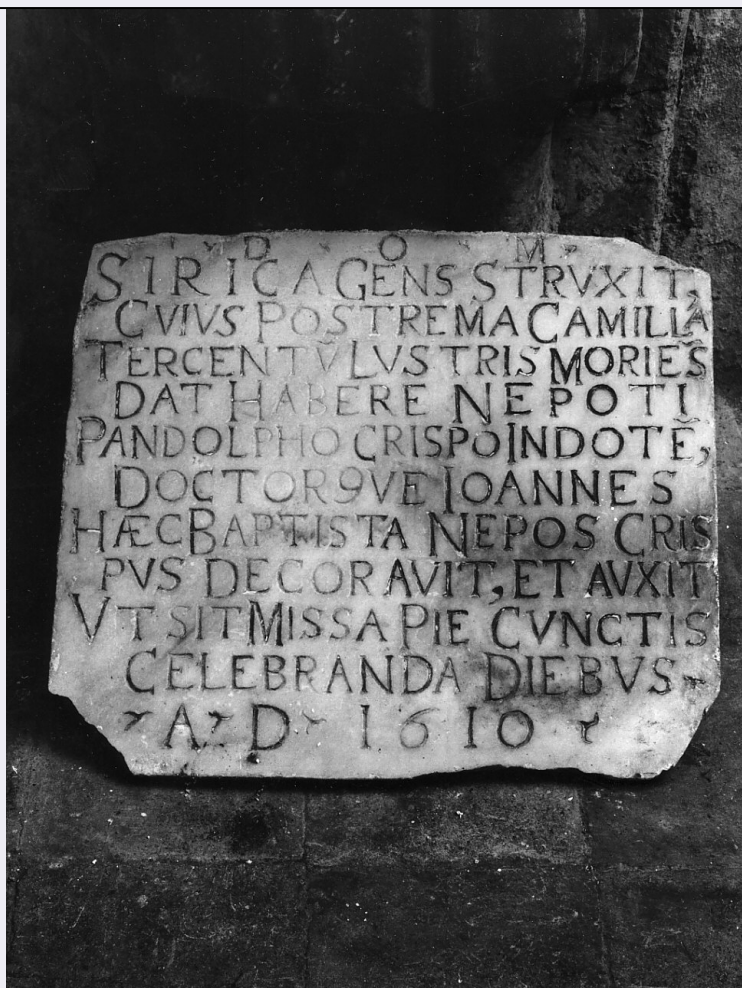 D O M
SIRICA GENS STRVXIT,
CVIVS POSTREMA CAMILLA
TERCENTṼ LVSTRIS MORIẼS
DAT HABERE NEPOTI
PANDOLPHO CRISPO INDOTẼ,
DOCTORQVE IOANNES
HÆC BAPTISTA NEPOS CRIS
PVS DECORAVIT, ET AVXIT
VT SIT MISSA PIE CVNCTIS
CELEBRANDA DIEBVS
A D 1610